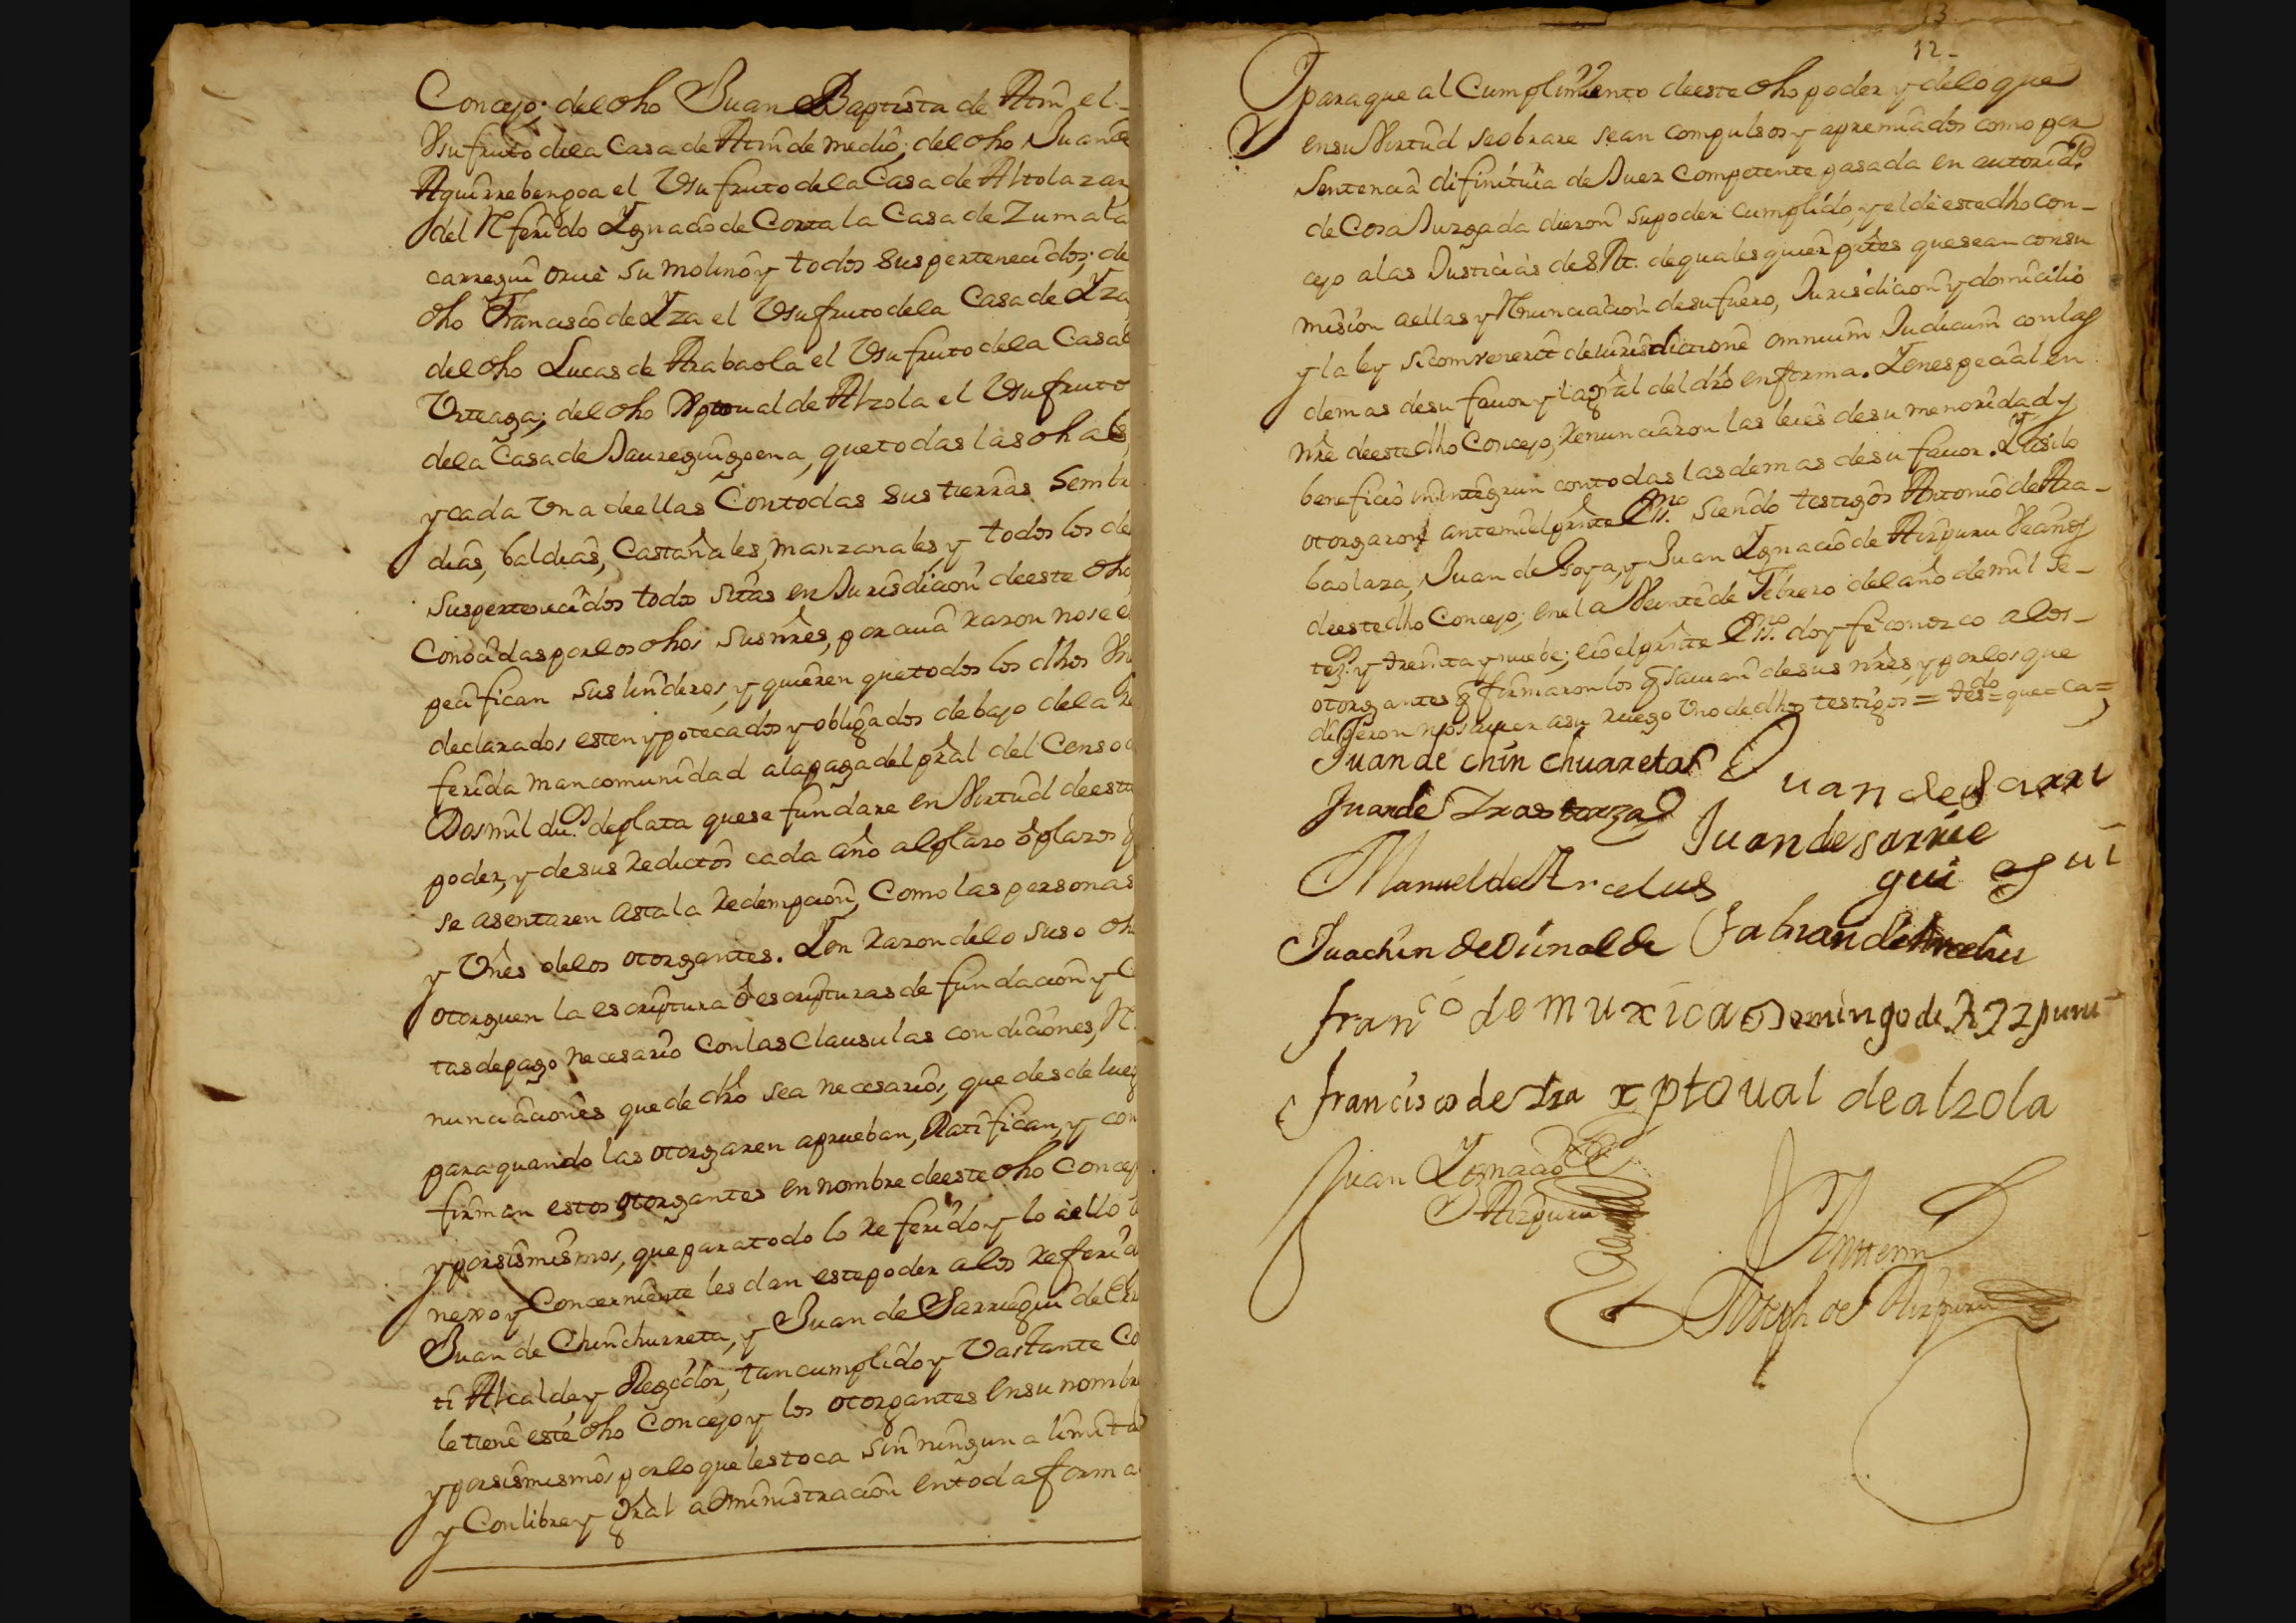 Concejo; del dho Juan Baptista de Atin el
Vsufruto dela Casa de Atin de medio; del dho Juan de
Aguirrebengoa el Vsufruto dela Casa de Altolazar
del Referido Ygnacio de Corta la Casa de Zumata
carregui orue su molino y todos sus pertenecidos; de
dho Francisco de Yza el Vsufruto dela Casa de Yza
del dho Lucas de Arabaola el Vsufruto dela Casa
Vrteaga; del dho Xptoual de Alzola el Vsufruto
dela Casa de Jaureguigoena, que todas las dhas
y cada Vna deellas Con todas sus tierras Sembr
dias, baldias, Castañales, manzanales, y todos los de
sus pertenecidos todo sitas en Jurisdicion deeste dho
Conocidas por los dhos sus nres, por cuia razon no se es
pecifican sus linderos, y quieren que todos los dhos
declarados esten ypotecados y obligados debajo dela re
ferida mancomunidad ala paga del pral del Censo
Dos mil du.s de plata que se fundare en Virtud deeste
poder, y de sus redictos cada año al plazo ô plazos q
se asentaren asta la redempcion, Como las personas
y Vnes delos otorgantes. Yen razon delo suso dh
otorguen la escriptura ô escripturas de fundacion y C
tas de pago necesario con las Clausulas condiciones, R
nunciaciones que de dro sea necesarios, que desde lueg
para quando las otorgaren aprueban, Ratifican, y con
firman estos otorgantes en nombre deeste dho Concej
y por si mismos, que para todo lo referido y lo aello
nexo y Concerniente les dan este poder alos referid
Juan de Chinchurreta, y Juan de Sarriegui de
ti Alcalde y Regidor, tan cumplido y Vastante Co
le tiene este dho Concejo y los otorgantes en su nombre
y por si mismos por lo que les toca sin ninguna limita
y Con libre y Gral administracion en toda forma
12
Y para que al Cumplimiento deeste dho poder y delo que
en su Virtud se obrare sean compulsos y apremiados como por
Sentencia difinitiua de Juez Competente pasada en autorid.d
de Cosa Juzgada dieron su poder cumplido, y el de este dho con-
cejo alas Justicias de S. M. de qualesquier partes que sean con su
mision aellas y Renunciacion de su fuero, Jurisdicion y domicilio
y la ley sicombenerit de iurisdictione omnium Judicum con las
demas de su fauor y la gral del dro en forma. Y en especial en
nre deeste dho Concejo, renunciaron las leies de su menoridad y
beneficio in integrun con todas las demas de su fauor. Y asi lo
otorgaron ante mi el prste Ess.no siendo testigos Antonio de Ara-
baolaza, Juan de Goya, y Juan Ygnacio de Aizpuru Vecinos
deeste dho Concejo; en el a Veinte de Febrero del año de mil se-
tez.s y treinta y nuebe; eio el prste Ess.no doy fe conozco alos
otorgantes q firmaron los q sauian de sus nres, y por los que
digeron no sauer a su ruego Vno de dhos testigos = tes.do = que = ca =
Juan de chin chuarreta
Juan de Sarri
Juan de Yraztorza
Juan de sarrie
gui
egui
Manuel de Arcelus
Juachin de Vinalde
Fabian de Arcelus
fran.co de muxica
Domingo de Azpuru
francisco de Iza
xptoual de alzola
Juan Ygnacio de
Aizpuru
Ante mi
Joseph de Aizpuru